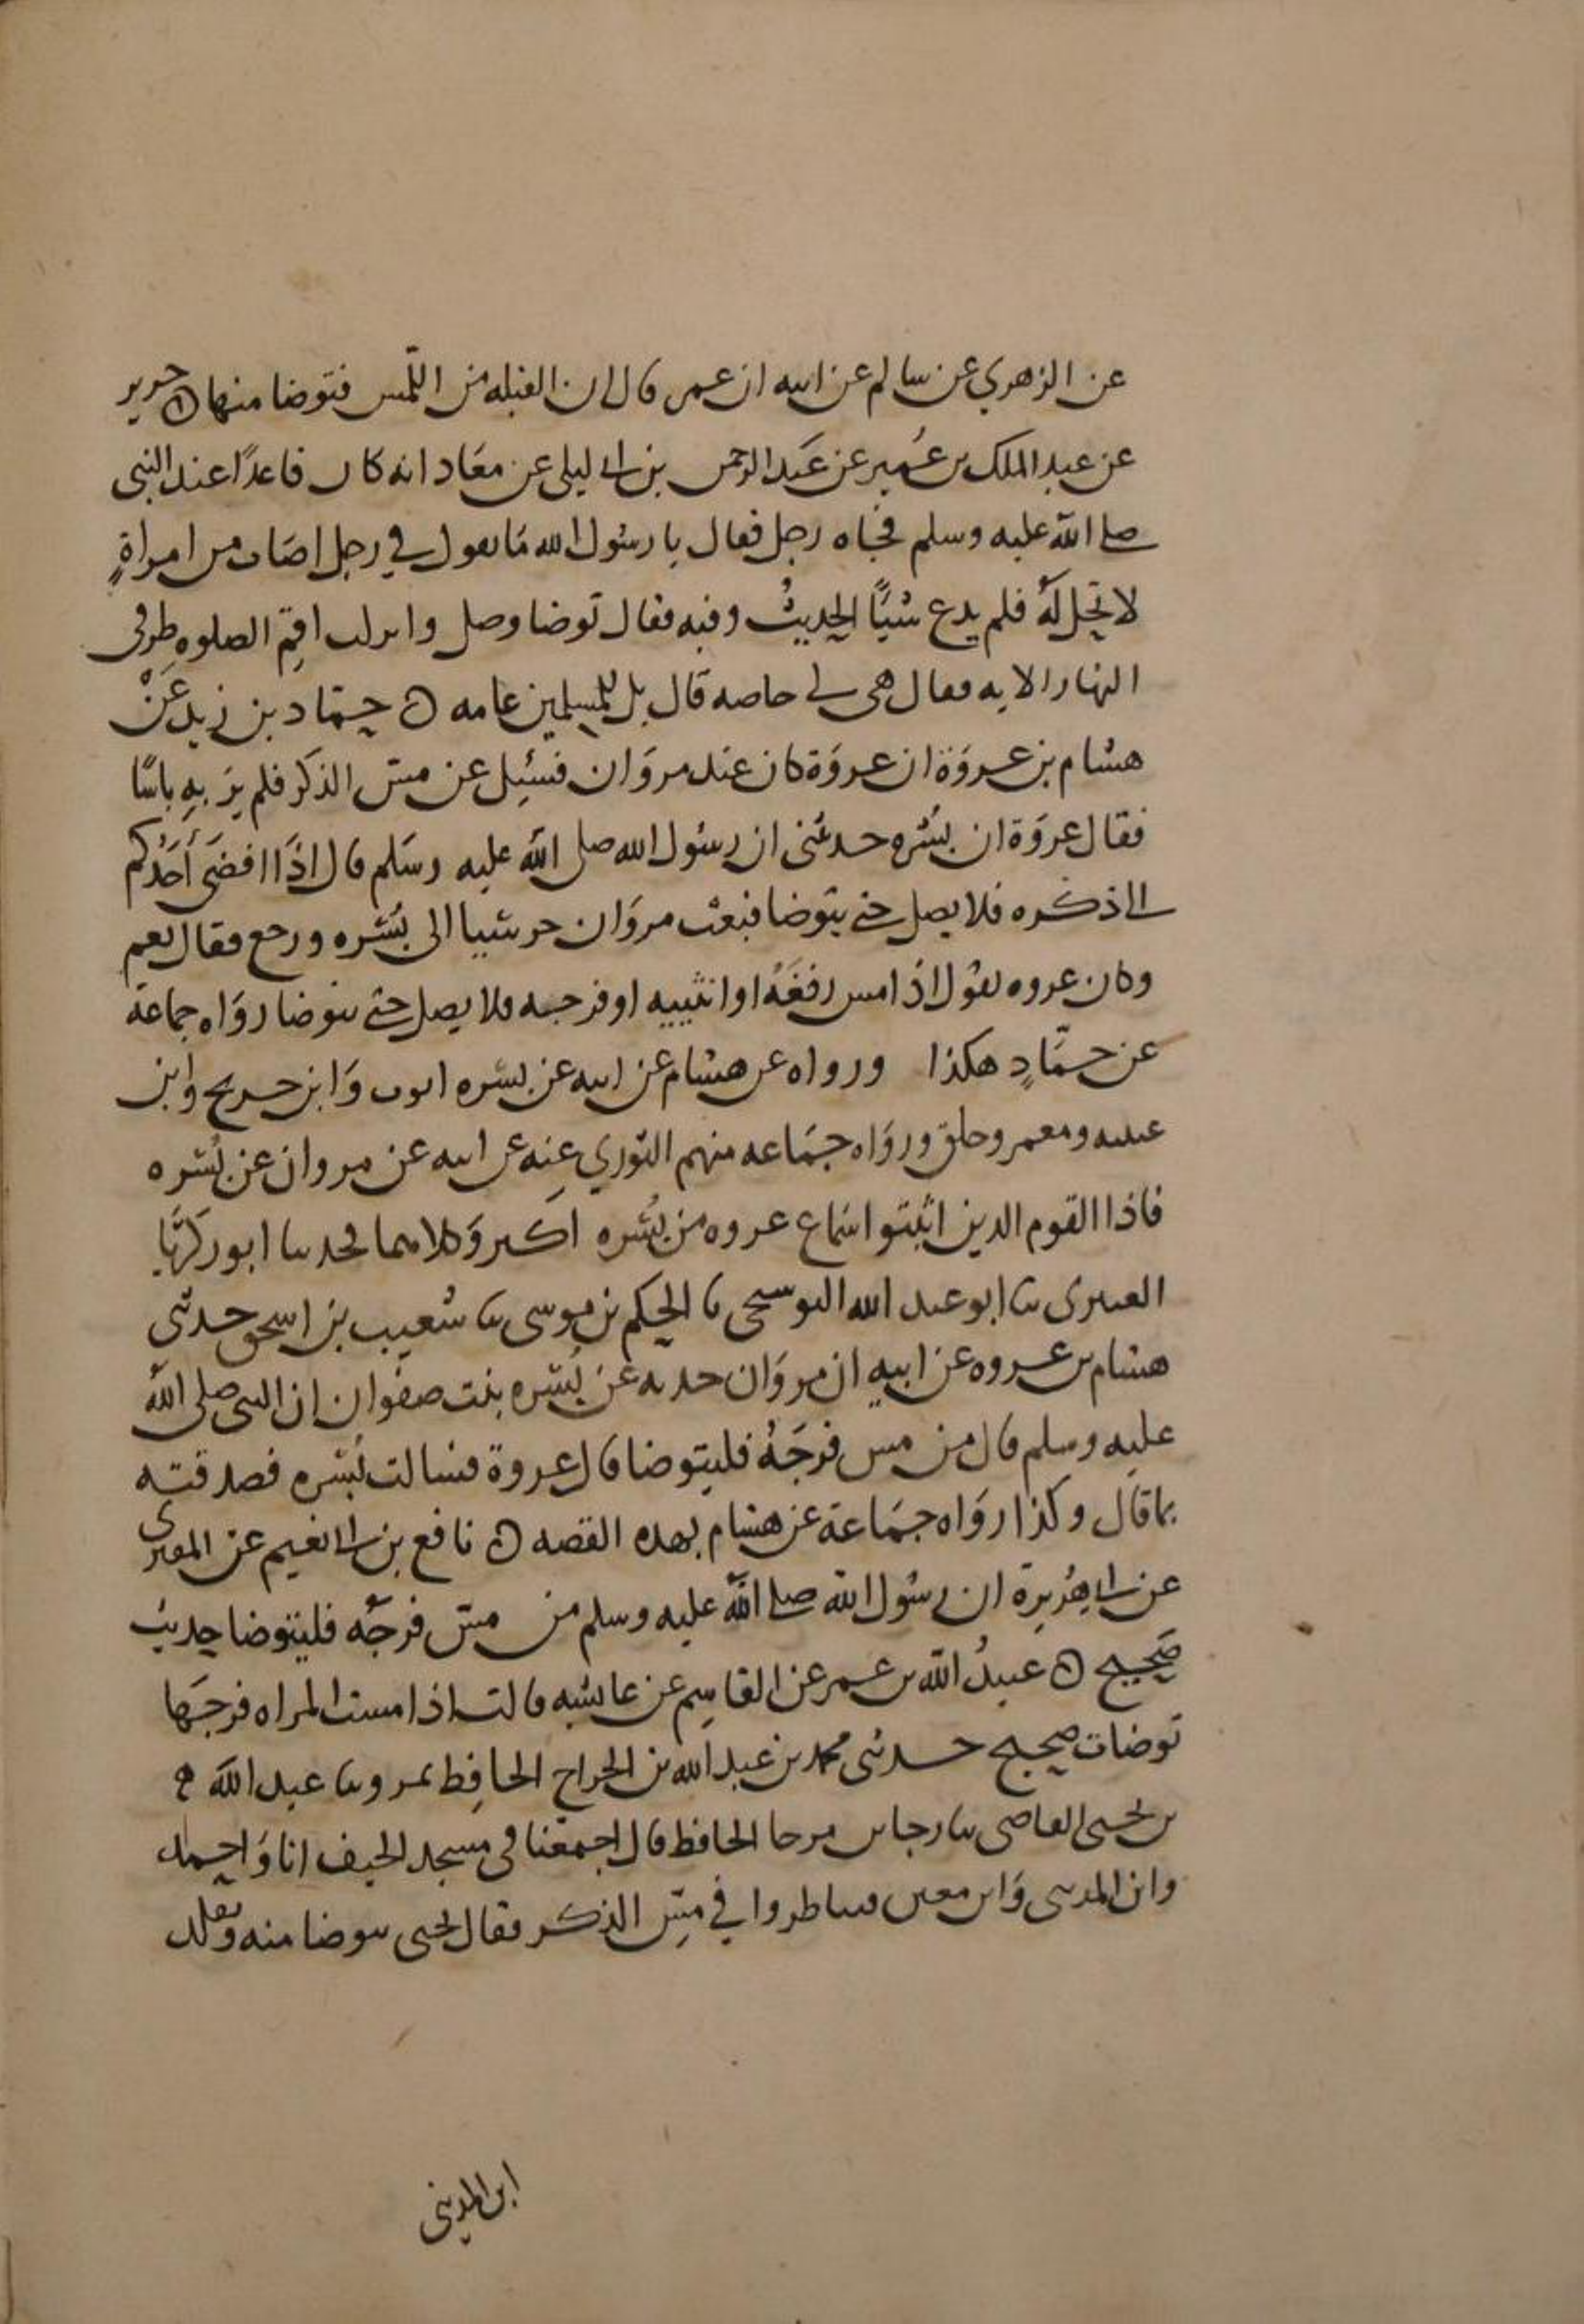 عن الزهري عن سالم عن ابيه ان عمر قال ان القبله من اللمس فتوضا منها ۞ جرير
عن عبد الملك بن عُمير عن عَبد الرحمن بن ابي ليلى عن معَاذ انه كان قاعدًا عند النبي
صلى الله عليه وسلم فجاه رجل فقال يا رسُول الله مَا تقول في رجل اصَاب من امراةٍ
لا تحِل لهُ فلم يدع شيًا الحديثُ وفيه فقال توضا وصل وانزلت اقم الصلوه طرفي
النهار الايه فقال هي لي خاصه قال بل للمسلمين عامه ۞ حمّاد بن زيد عَنْ
هشام بن عروَة ان عروَة كان عند مروَان فسُئِل عن مسّ الذكر فلم يرَ بهِ باسًا
فقال عروَة ان بُسْره حدثتنى ان رسُول الله صلى الله عليه وسَلم قال اذَا افضَى أحَدُكم
الى ذكره فلا يصل حتى يتوضا فبعث مروَان حرسيا الى بُسْره ورجع فقال نعم
وكان عروه يقول اذا مس رفغَهُ او انثييه او فرجه فلا يصل حتى يتوضا روَاه جماعة
عن حمّادٍ هكذا ورواه عن هشام عن ابيه عن بسره ايوب وَابن جريج وابن
عيينه ومعمر وخلق وروَاه جمَاعه منهم الثوري عنه عن ابيه عن مروان عن بُسْره
فاذا القوم الذين اثبتوا سَمَاع عروه من بُسْره اكبر وَكلاهما لحدثنا ابو زكرَيّا
العنبري ثنا ابو عبد الله البوسنجى نا الحكم بن موسى ثنا شُعيب بن اسحق حدثنى
هشام بن عروه عن ابيهِ ان مروَان حدثه عَن بُسْره بنت صفوان ان النبى صلى اللهُ
عليه وسلم قال من مس فرجَهُ فليتوضا قال عروة فسالت بُسْره فصدقته
بما قال وكذا روَاه جمَاعة عن هشام بهذه القصه ۞ نافع بن ابي نعيم عن المقبري
عن ابي هُريرة ان رسُول الله صلى الله عليه وسلم من مسّ فرجَه فليتوضا حديث
صَحيح ۞ عبيدُ الله بن عمر عن القاسِم عن عايشه قالت اذا مست المراه فرجَها
توضات صحيح حدثنى محمد بن عبد الله بن الجراح الحافِظ بمرو ثنا عبد الله
بن يحيى القاضى ثنا رجا بن مرجا الحافظ قال اجتمعَنا في مسجد الخيف انا وَاحمد
وابن المدينى وَابن معين فتناظروا في مسّ الذكر فقال يحيى يتوضا منه وتقلد
ابن المدينى